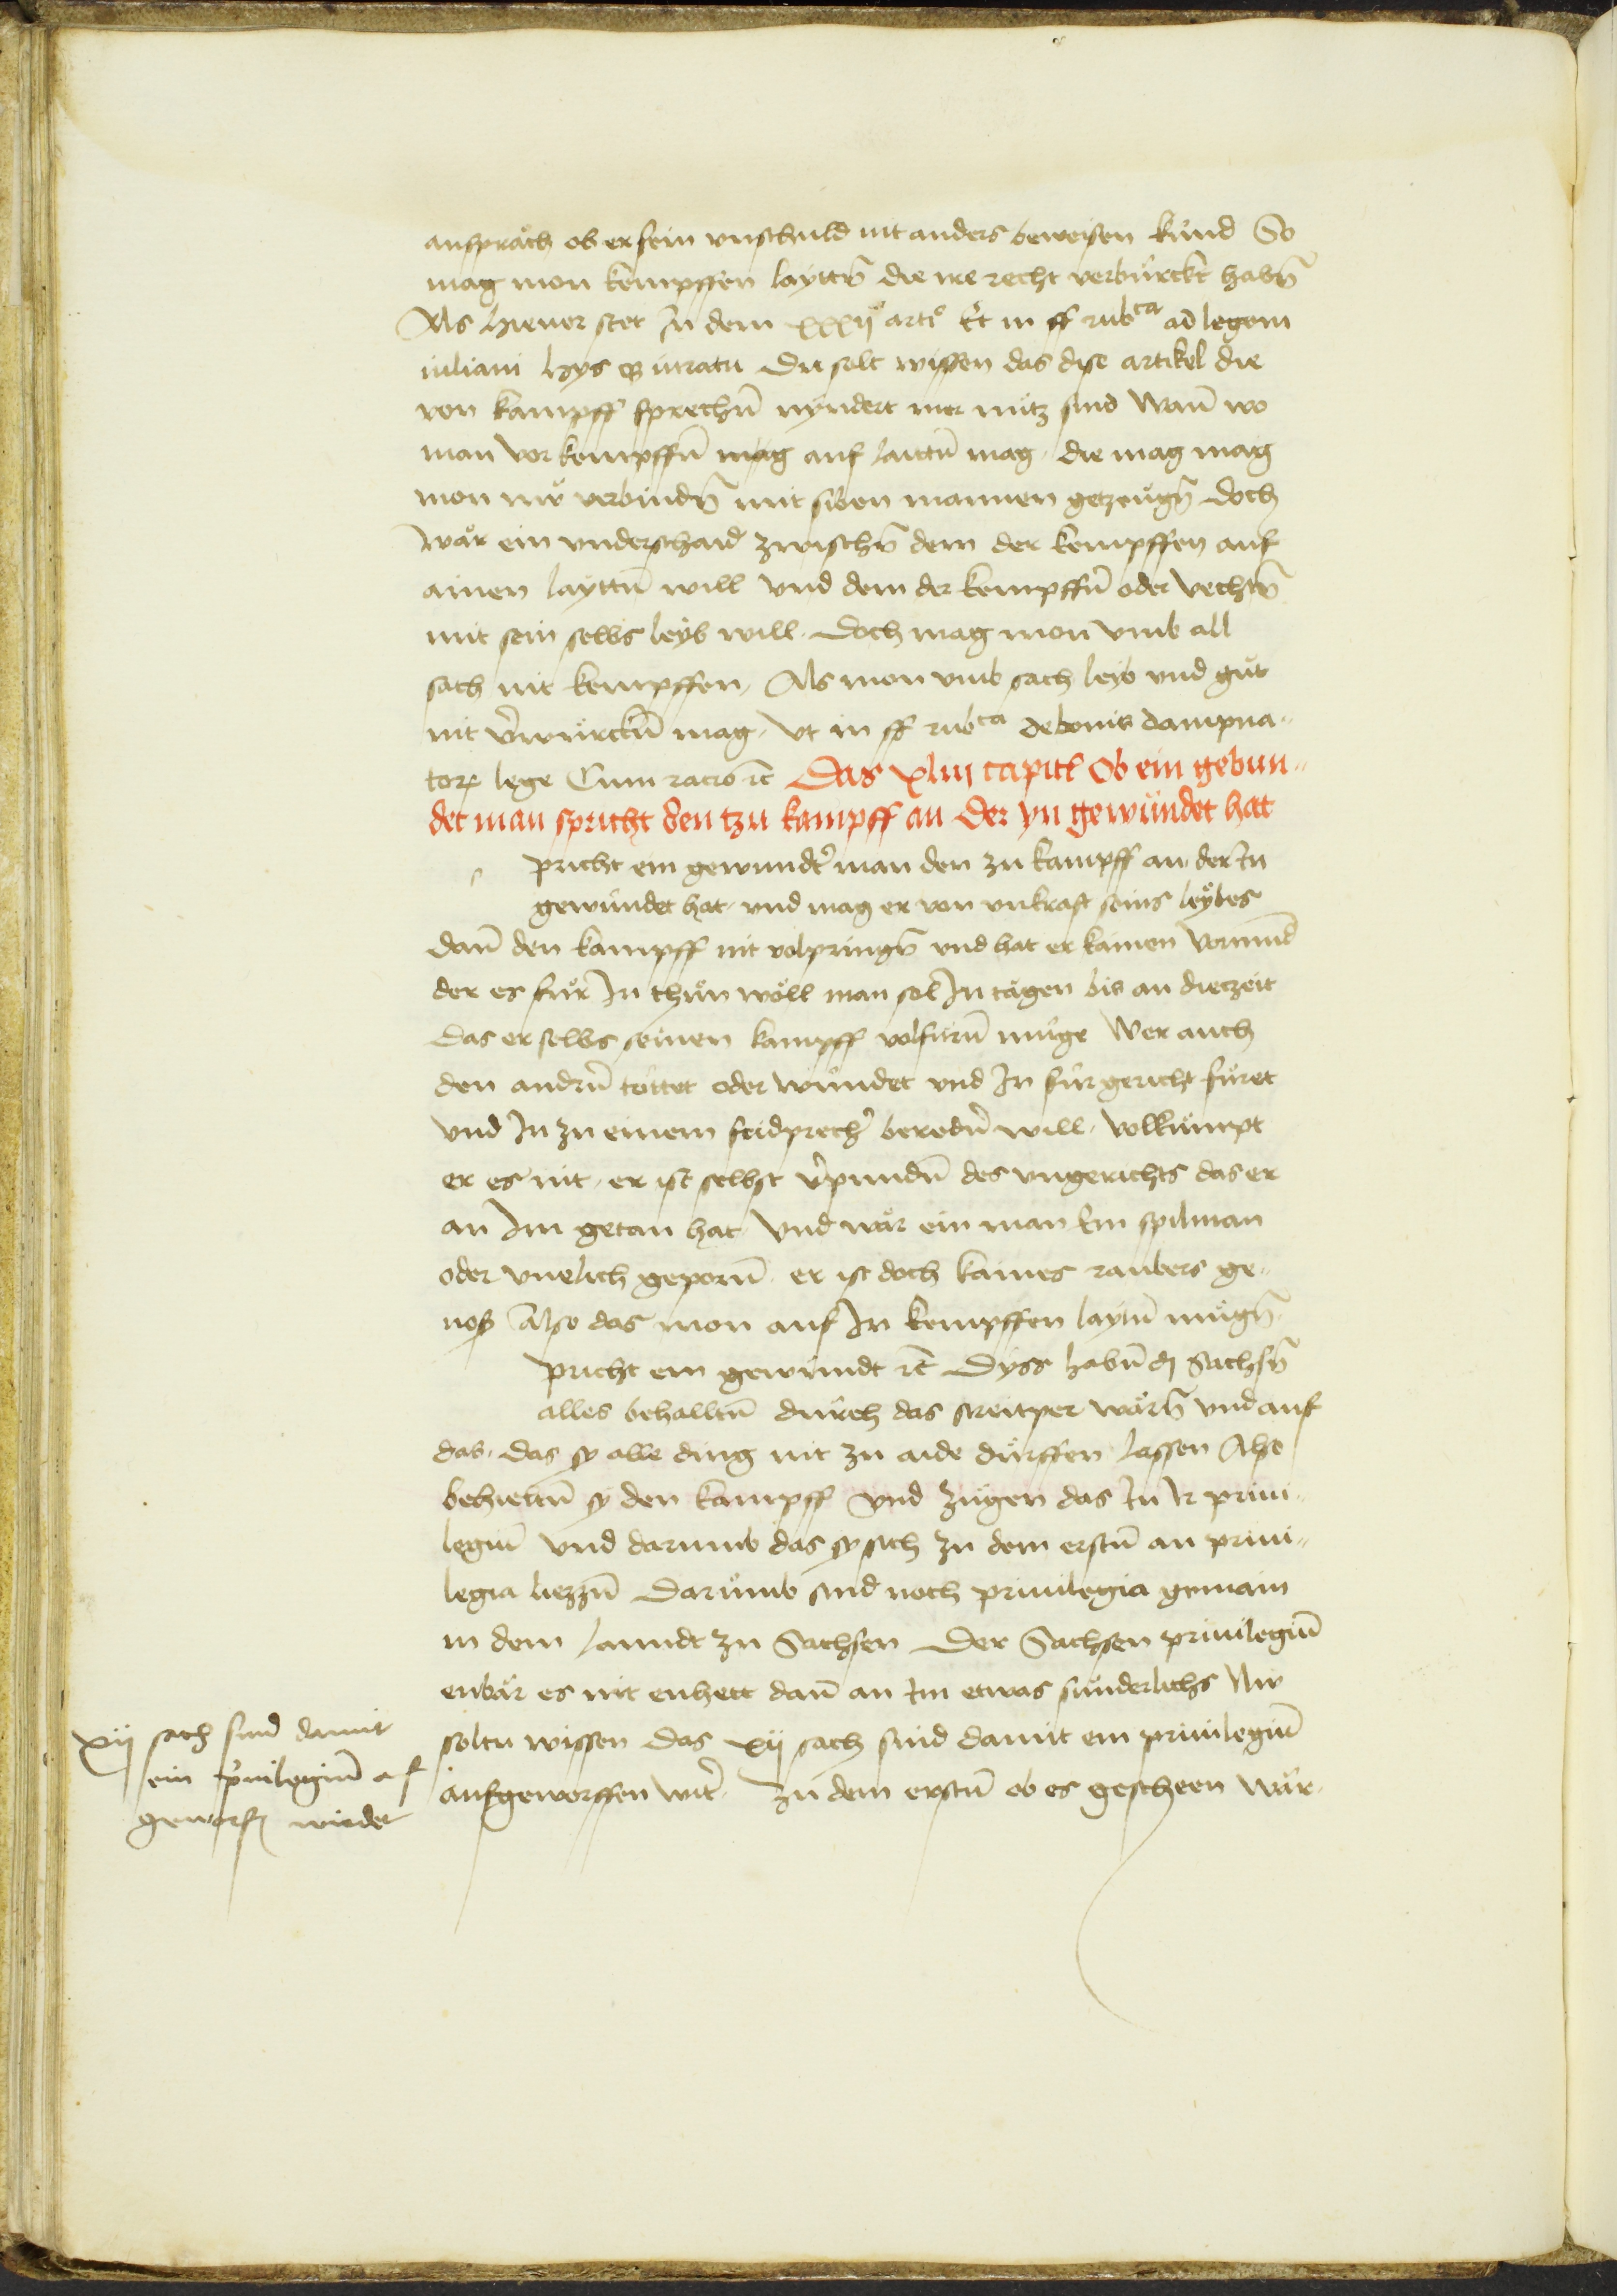 ansprach ob er sein vnschuld nit anders beweisen kund So
mag mon kempffen layttn̄ die ire recht verbu̍rckt habn̄
Als hieuor stet In dem xxxij° arti° Et in ff rubca ad legem
iuliam Du solt wissen das dise artikel die
von kampff sprechn̄ nyndert mer nu̍tz sind Wan̄ wo
man vor kempffn̄ mag auf laittn̄ mag die mag mag
mon nu̍r verbindn̄ mit siben mannen getzeu̍gn̄ doch
wa̍r ein vnderschaid zwischn̄ dem der kempffen auf
ainen layttn̄ will vnd dem der kempffn̄ oder vechtn̄
mit sein selbs leyb will. doch mag mon vmb all
sach nit kempffen, Als mon vmb sach leyb vnd gu̍t
nit v̍wu̍rckn̄ mag, vt in ff rubca de bonis dampna-
tor lege Cum racio rc Das xliij capitl Ob ein gebun-
det man spricht den tzu kampff an der yn gewu̍ndet hat
s pricht ein gewundt̍ man den zu kampff an, der In
gewu̍ndet hat, vnd mag er von vnkraft seins leybes
dan̄ den kampff nit volpringn̄ vnd hat er kainen vormund
der es fu̍r In thu̍n wo̍ll man sol In tagen bis an die zeit
das er selbs seinen kampff volfu̍rn̄ mu̍ge Wer auch
den andrn̄ to̍ttet oder wu̍ndet vnd In fu̍r gericht fu̍ret
vnd In zu einem fridprech̍ beredn̄ will, vollku̍mpt
er es nit, er ist selbst v̍pundn̄ des vngerichts das er
an Im getan hat, vnd wa̍r ein man Ein spilman
oder vnelich geporn̄. er ist doch kaines raubers ge-
noß Also das mon auf In kempffen laytn̄ mu̍gn̄.
pricht ein gewundt rc Dyss habn̄ di Sachsn̄
alles behalltn̄ durch das streitper wa̍rn̄ vnd auf
das, das sy alle ding nit zu aide du̍rffen lassen Also
behieltn̄ sy den kampff vnd zu̍gen das In Ir priui-
legiu̅ vnd darumb das sy sich zu dem erstn̄ an priui-
legia liezzn̄ Daru̍mb sind noch priuilegia gemain
in dem lanndt zu Sachsen Der Sachsen priuilegiu̅
enba̍r es nit enhett dan̄ an Im etwas su̍nderlichs Nu
soltu wissen das xij sach sind damit ein priuilegiu̅
aufgeworffen wirt. Zu dem erstn̄ ob es gescheen wa̍r.
xij sach sind damit
ein p̍uilegiu̅ auf
geworfn̄ wirdet